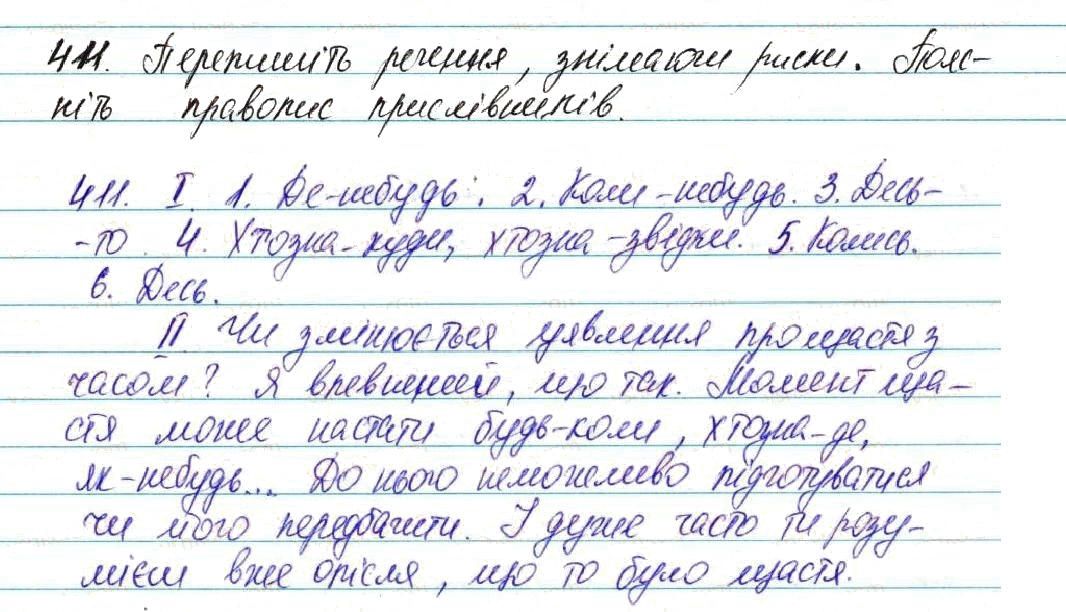 411. Перепишіть речення, знімаючи риски. Пояс-
ніть правопис прислівників.
411. I. 1. Де-небудь. 2. Коли-небудь. 3. Десь-
-то. 4. Хтозна-куди, хтозна-звідки. 5. Колись.
6. Десь.
II Чи змінюється уявлення про щастя з
часом? Я впевнений, що так. Момент ща-
стя може настати будь-коли, хтозна-де,
як-небудь... До нього неможливо підготуватися
чи його передбачити. І дуже часто ти розу-
мієш вже опісля, що то було щастя.